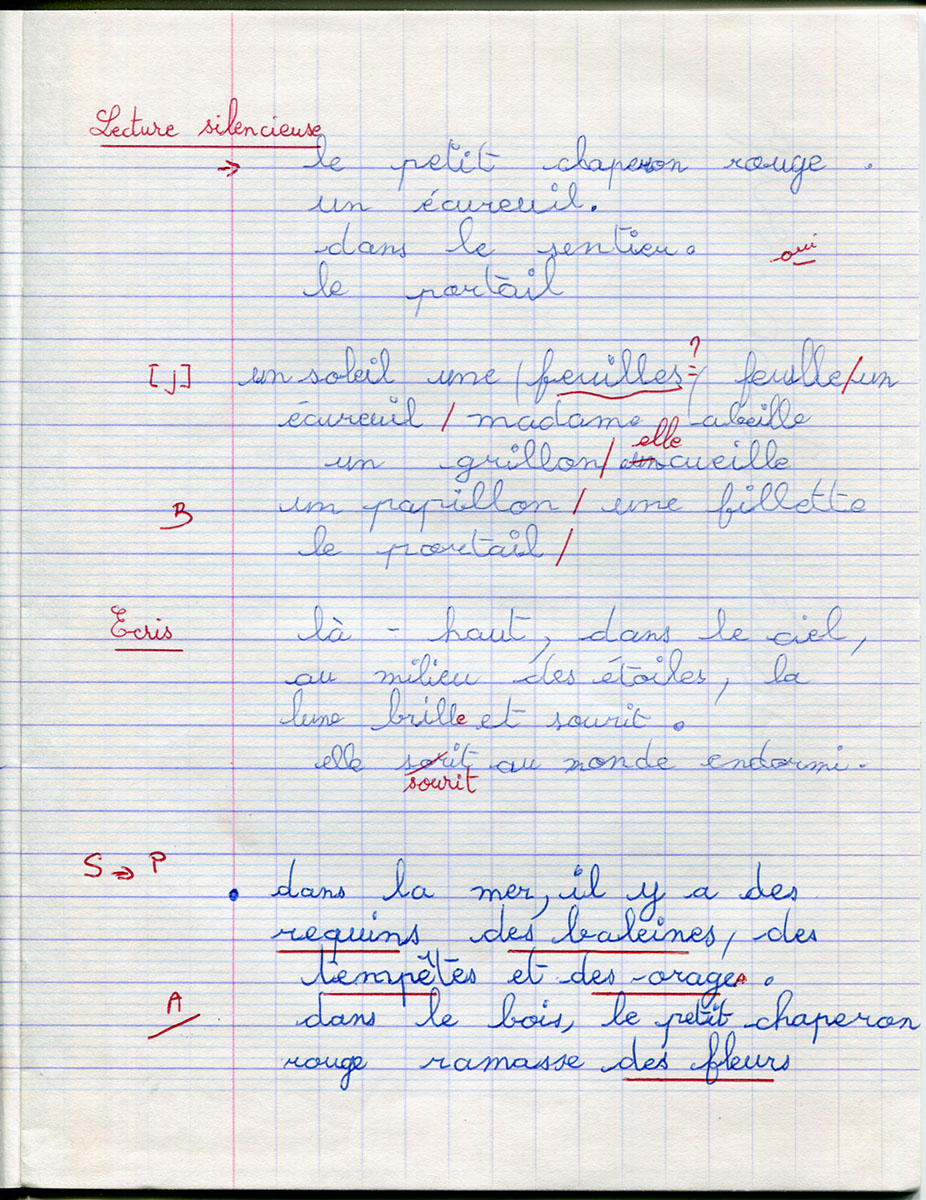 Lecture silencieuse
→ le petit chaperon rouge.
un écureuil.
dans le sentier. oui
le portail
?
[j] un soleil une (feuilles) feuille/un
écureuil / madame abeille
elle
un grillon/ un cueille
B un papillon / une fillette
le portail /
Ecris là-haut, dans le ciel,
au milieu des étoiles, la
lune brille et sourit.
elle sorit au monde endormi.
sourit
S → P
• dans la mer, il y a des
requins des baleines, des
tempêtes et des orages.
A dans le bois, le petit chaperon
rouge ramasse des fleurs